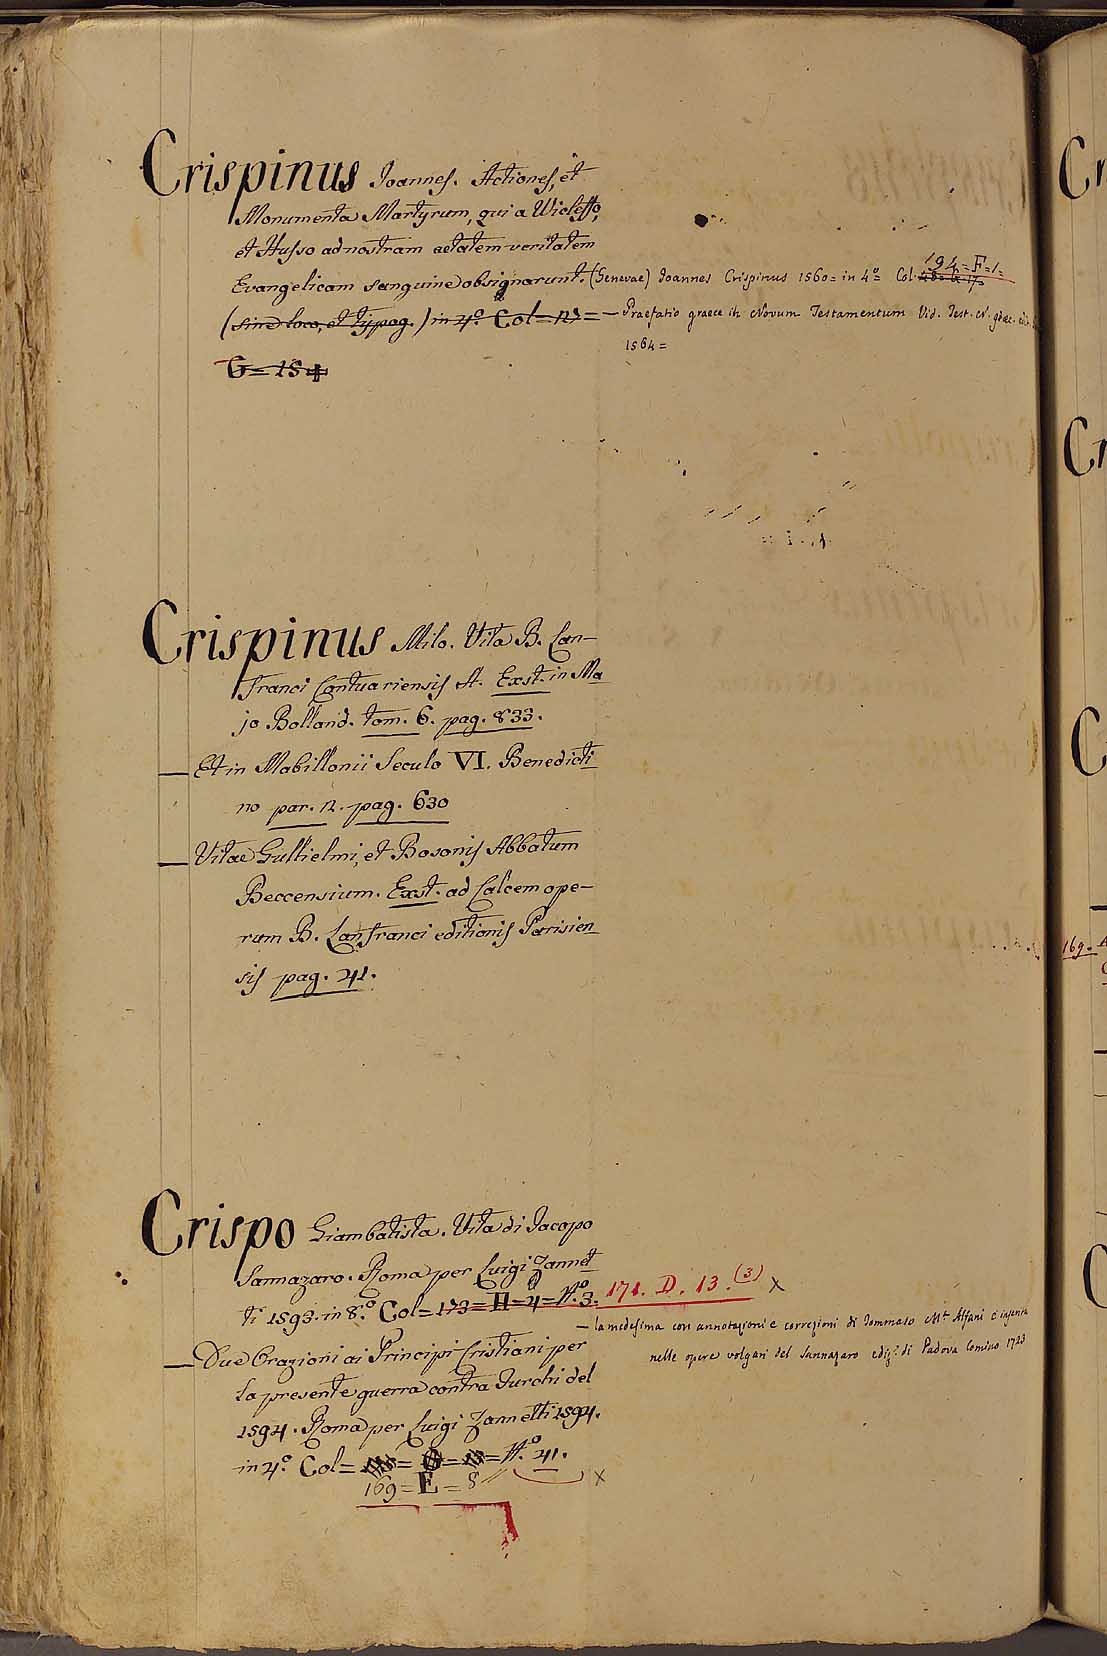 Crispinus Joannes. Actiones, et
Monumenta Martyrum, qui a Wicleffo,
et Husso ad nostram aetatem veritatem
Evangelicam sanguine obsignarunt. (Genevae) Joannes Crispinus 1560 = in 4.º Col. 194 = F = 1 =
(sine loco, et typog.) in 4.º Col = = — Praefatio graece in Novum Testamentum Vid. Test. N. graec.
1564 =
G = 154
Crispinus Milo. Vita B. Lan-
franci Cantuariensis A. Exst. in Ma
jo Bolland. tom. 6. pag. 833.
— Et in Mabillonii Seculo VI. Benedicti
no par. 2. pag. 630
— Vitae Gullielmi, et Bosonis Abbatum
Beccensium. Exst. ad Calcem ope-
rum B. Lanfranci editionis Parisien
sis pag. 41.
Crispo Giambatista. Vita di Jacopo
Sannazaro. Roma per Luigi Zannet
ti 1593. in 8.º Col = 173 = H = 4 = N.º 3. 171. D. 13. (3) x
— la medesima con annotazioni e correzioni di Tommaso M.ª Alfani è inserita
nelle opere volgari del Sannazaro ediz.e di Padova Comino 1723
— Due Orazioni ai Principi Cristiani per
la presente guerra contra Turchi del
1594. Roma per Luigi Zannetti 1594.
in 4.º Col = = = = N.º 41.
169 = E = 8 x
169.